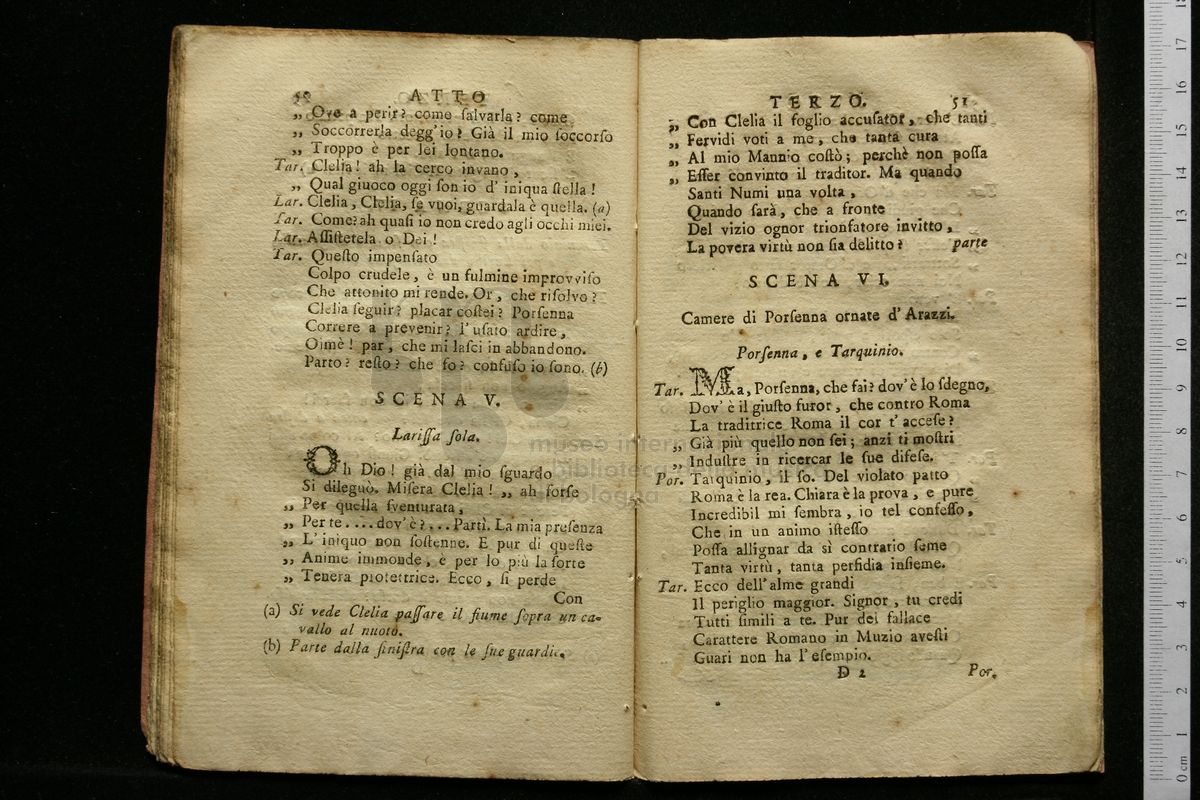 50 ATTO
„ Ove a perir? come ſalvarla? come
„ Soccorrerla degg'io? Già il mio ſoccorſo
„ Troppo è per lei lontano.
Tar. Clelia! ah la cerco invano,
„ Qual giuoco oggi ſon io d' iniqua ſtella!
Lar. Clelia, Clelia, ſe vuoi, guardala è quella. (a)
Tar. Come? ah quaſi io non credo agli occhi miei.
Lar. Aſſiſtetela o Dei!
Tar. Queſto impenſato
Colpo crudele, è un fulmine improvviſo
Che attonito mi rende. Or, che riſolvo?
Clelia ſeguir? placar coſtei? Porſenna
Correre a prevenir? l'uſato ardire,
Oimè! par, che mi laſci in abbandono.
Parto? reſto? che fo? confuſo io ſono. (b)
SCENA V.
Lariſſa ſola.
Oh Dio! già dal mio ſguardo
Si dileguò. Miſera Clelia! „ ah forſe
„ Per quella ſventurata,
„ Per te.... dov'è?... Partì. La mia preſenza
„ L'iniquo non ſoſtenne. E pur di queſte
„ Anime immonde, è per lo più la ſorte
„ Tenera protettrice. Ecco, ſi perde
Con
(a) Si vede Clelia paſſare il fiume ſopra un ca-
vallo al nuoto.
(b) Parte dalla ſiniſtra con le ſue guardie.
TERZO. 51
„ Con Clelia il foglio accuſator, che tanti
„ Fervidi voti a me, che tanta cura
„ Al mio Mannio coſtò; perchè non poſſa
„ Eſſer convinto il traditor. Ma quando
Santi Numi una volta,
Quando ſarà, che a fronte
Del vizio ognor trionfatore invitto,
La povera virtù non ſia delitto? parte
SCENA VI.
Camere di Porſenna ornate d'Arazzi.
Porſenna, e Tarquinio.
Tar. Ma, Porſenna, che fai? dov'è lo ſdegno,
Dov'è il giuſto furor, che contro Roma
La traditrice Roma il cor t'acceſe?
„ Già più quello non ſei; anzi ti moſtri
„ Induſtre in ricercar le ſue difeſe.
Por. Tarquinio, il ſo. Del violato patto
Roma è la rea. Chiara è la prova, e pure
Incredibil mi ſembra, io tel confeſſo,
Che in un animo iſteſſo
Poſſa allignar da sì contrario ſeme
Tanta virtù, tanta perfidia inſieme.
Tar. Ecco dell'alme grandi
Il periglio maggior. Signor, tu credi
Tutti ſimili a te. Pur del fallace
Carattere Romano in Muzio aveſti
Guari non ha l'eſempio.
D 2 Por.